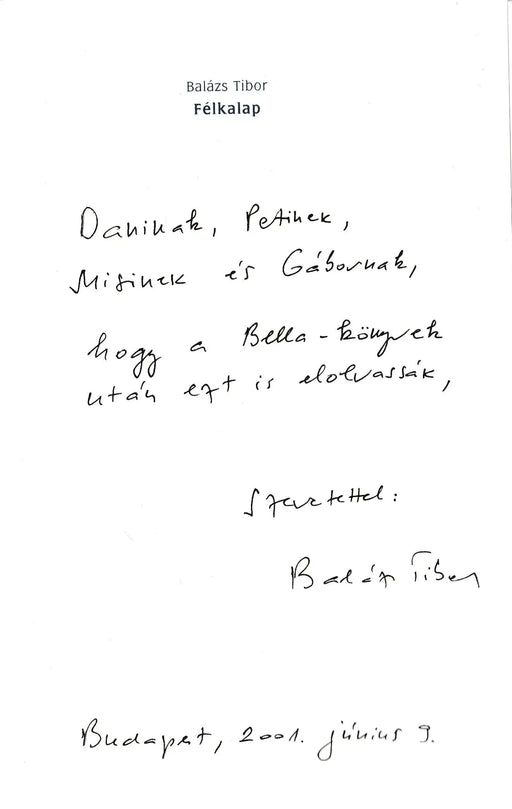 Balázs Tibor
Félkalap
Daninak, Petinek,
Misinek és Gábornak,
hogy a Bella-könyvek
után ezt is elolvassák,
Szeretettel:
Balázs Tibor
Budapest, 2001. június 9.